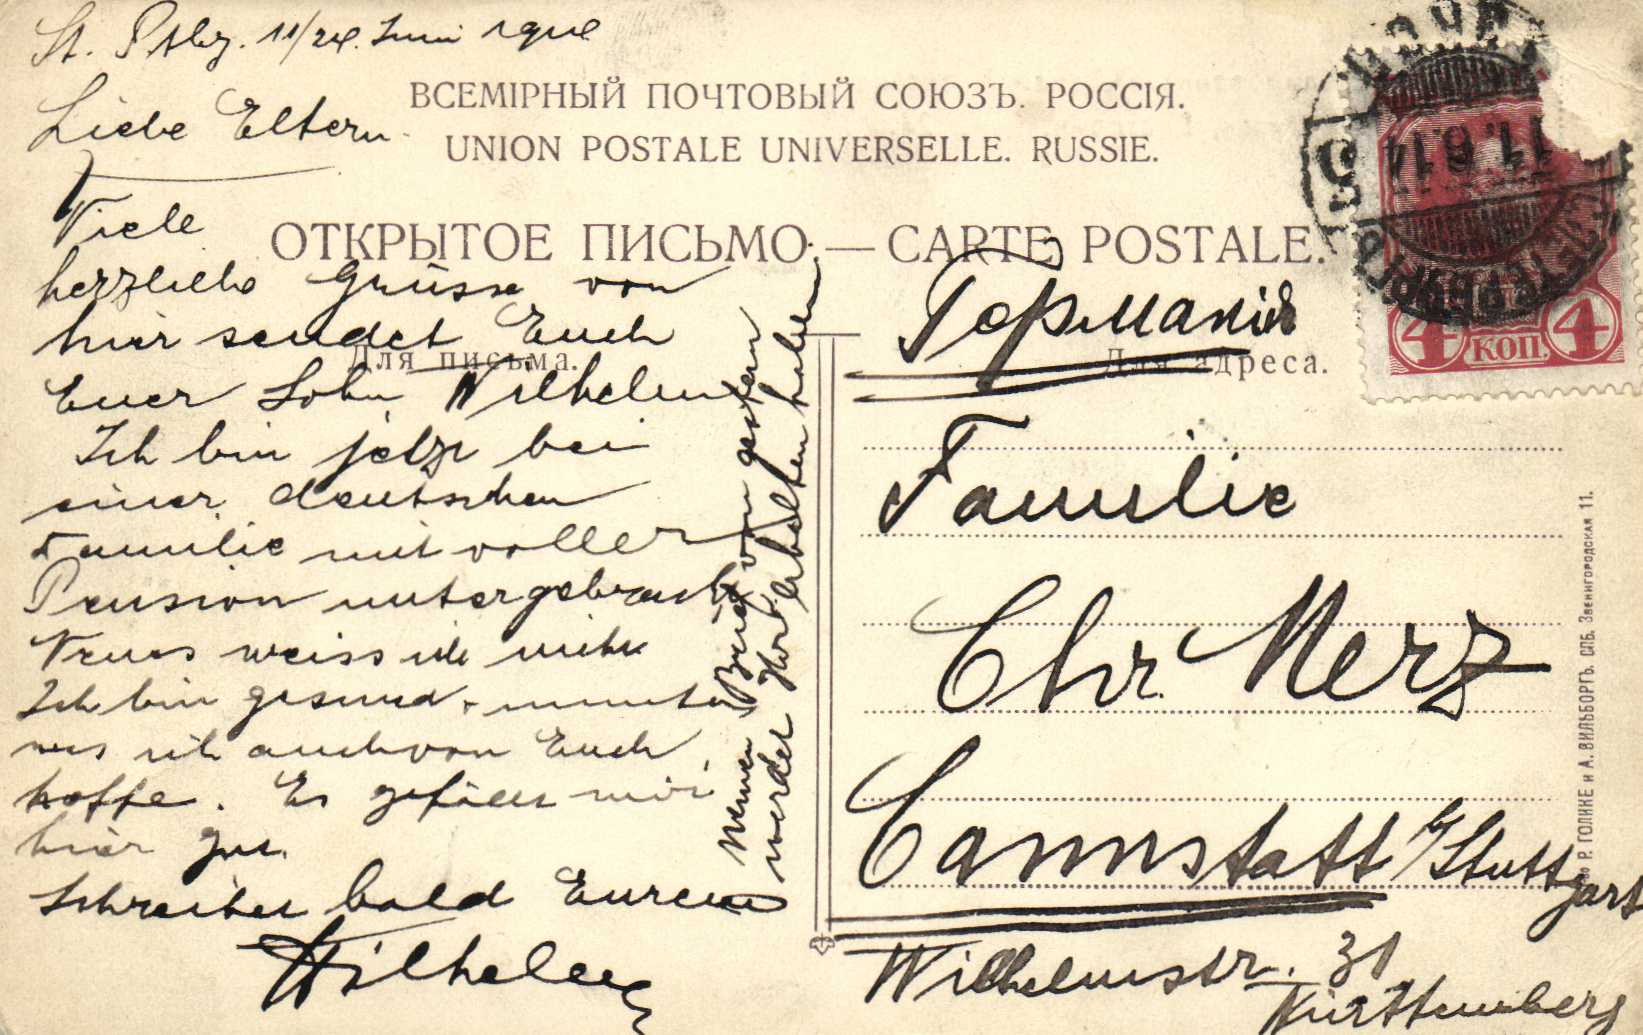 St. Ptbg. 11/24. Juni 1914
Liebe Eltern
ВСЕМІРНЫЙ ПОЧТОВЫЙ СОЮЗЪ. РОССІЯ.
UNION POSTALE UNIVERSELLE. RUSSIE.
ОТКРЫТОЕ ПИСЬМО. — CARTE POSTALE.
Для письма.
Viele
herzliche Grüsse von
hier sendet Euch
Euer Sohn Wilhelm
Ich bin jetzt bei
einer deutschen
Familie mit voller
Pension untergebracht
Neues weiss ich nicht
Ich bin gesund. munter
was ich auch von Euch
hoffe. Es gefällt mir
hier gut.
Schreibet bald Eurem
Wilhelm
Meinen Brief von gestern
werdet Ihr erhalten haben
Для адреса.
Германія
Familie
Chr Merz
Cannstatt b/Stuttgart
Wilhelmstr. 31
Württemberg
4 КОП. 4
11.6.14
Р. ГОЛИКЕ и А. ВИЛЬБОРГЪ. СПБ. Звенигородская 11.